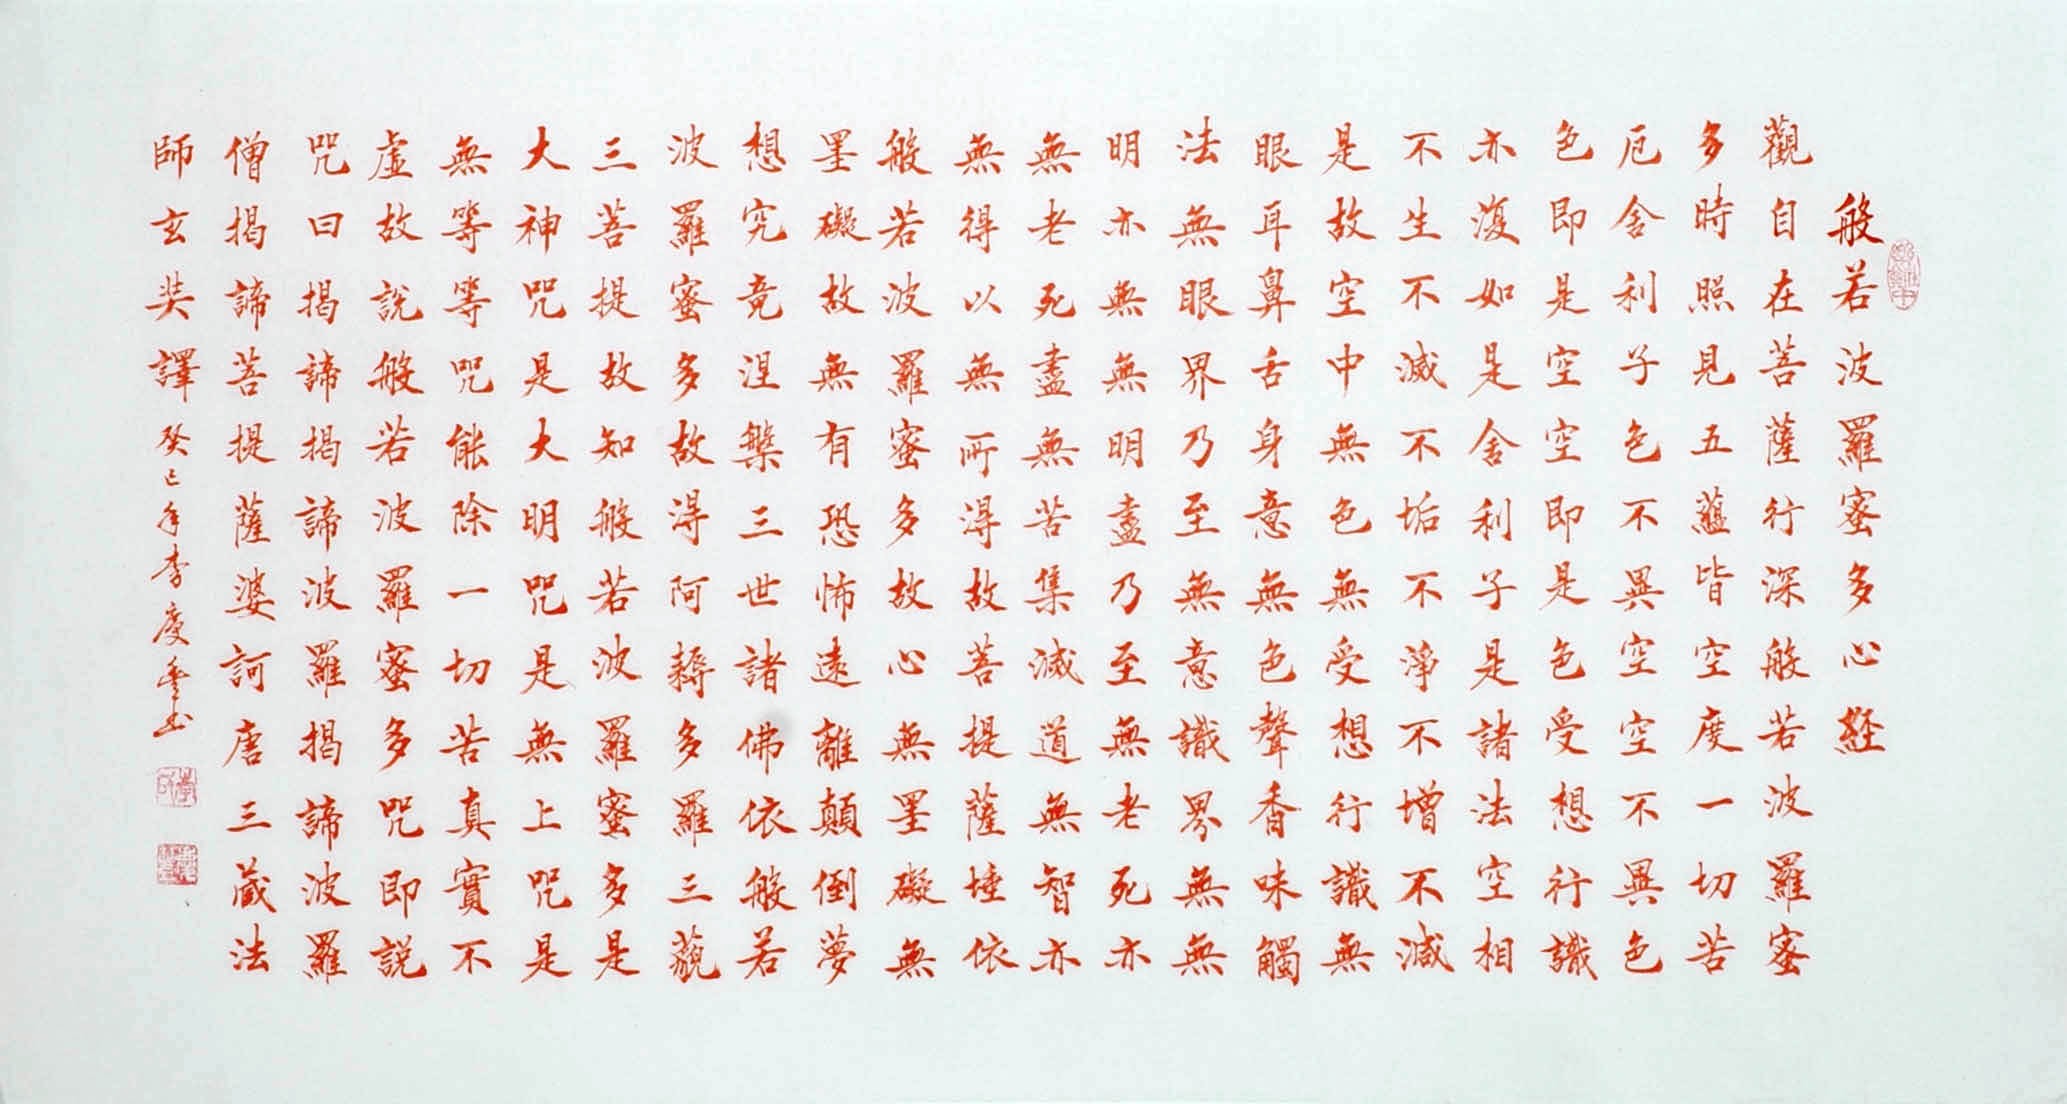 般若波羅蜜多心經
觀自在菩薩行深般若波羅蜜
多時照見五蘊皆空度一切苦
厄舍利子色不異空空不異色
色即是空空即是色受想行識
亦復如是舍利子是諸法空相
不生不滅不垢不淨不增不減
是故空中無色無受想行識無
眼耳鼻舌身意無色聲香味觸
法無眼界乃至無意識界無無
明亦無無明盡乃至無老死亦
無老死盡無苦集滅道無智亦
無得以無所得故菩提薩埵依
般若波羅蜜多故心無墨礙無
墨礙故無有恐怖遠離顛倒夢
想究竟涅槃三世諸佛依般若
波羅蜜多故得阿耨多羅三藐
三菩提故知般若波羅蜜多是
大神咒是大明咒是無上咒是
無等等咒能除一切苦真實不
虛故說般若波羅蜜多咒即說
咒曰揭諦揭諦波羅揭諦波羅
僧揭諦菩提薩婆訶唐三藏法
師玄奘譯 癸巳年李慶豐書